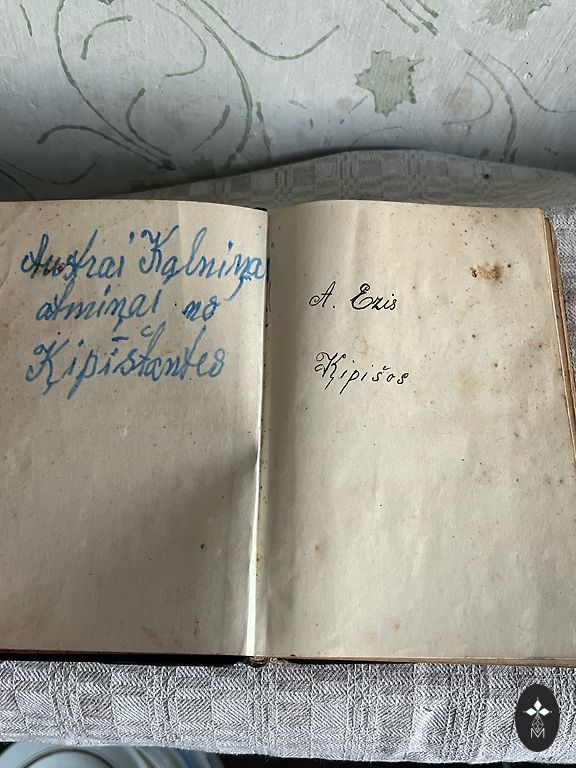 Austrai Kalniņai
atmiņai no
Ķipīštantes
A. Ezis
Ķipišos
M